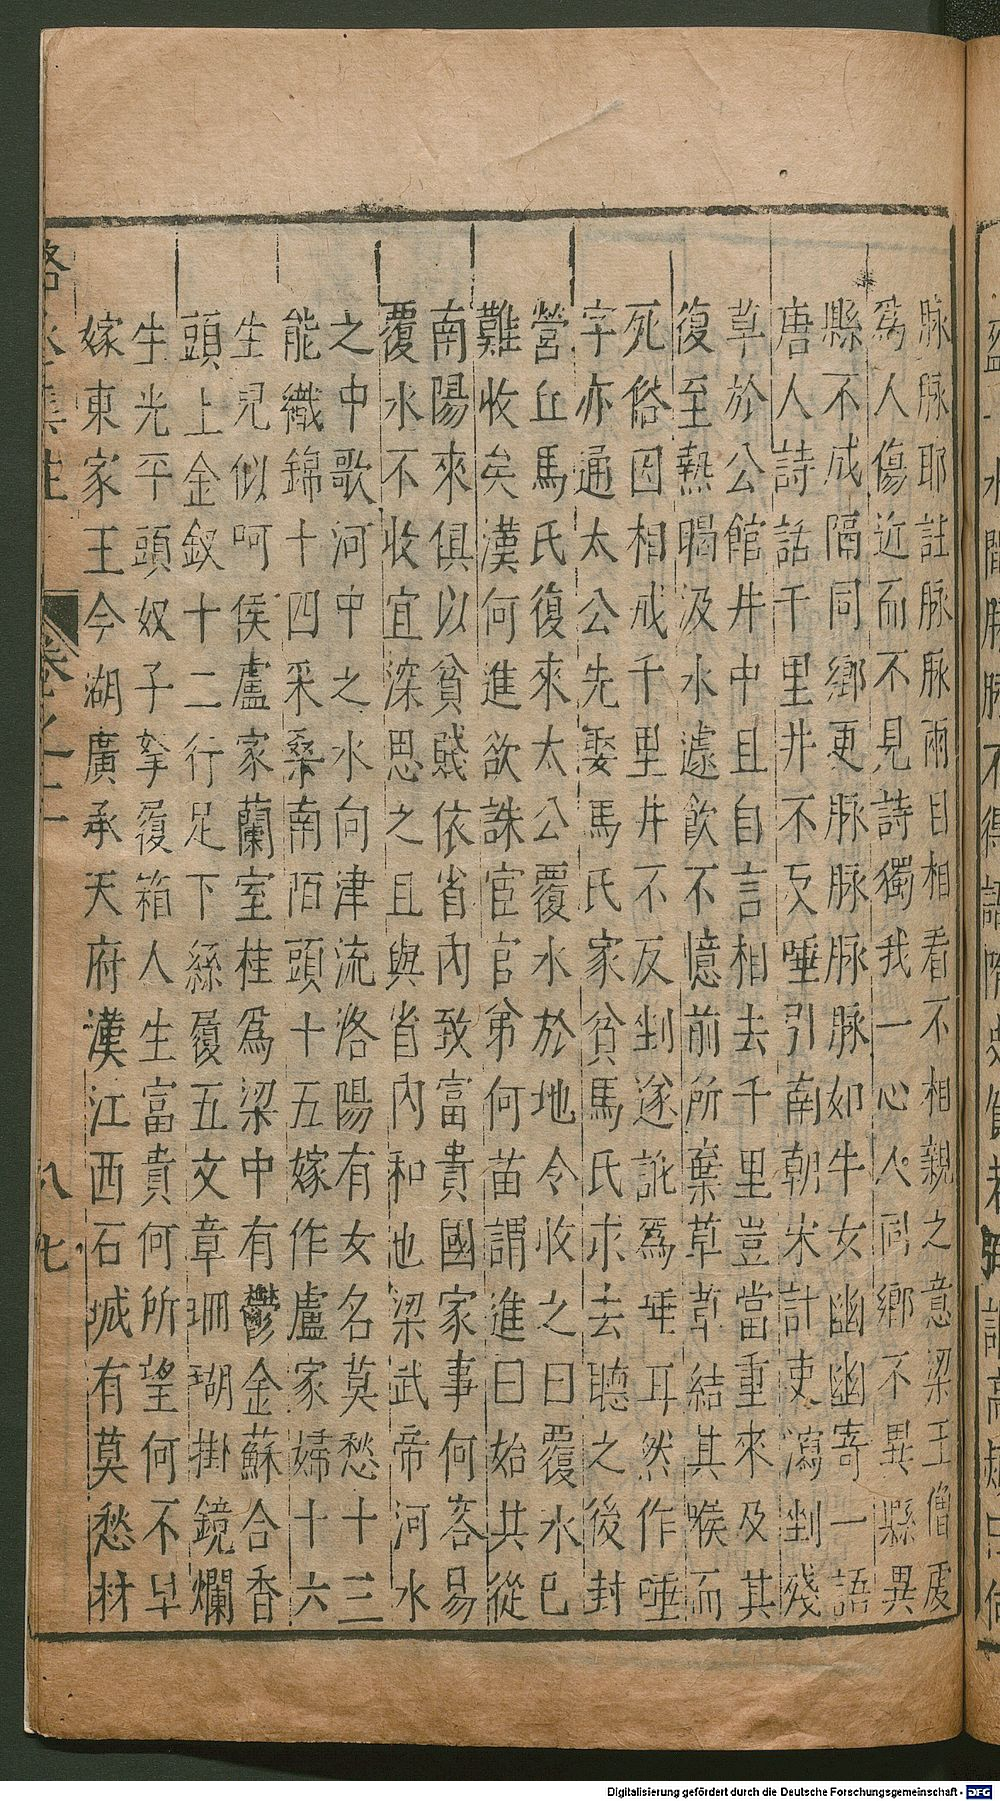 脉脉耶註脉脉雨目相看不相親之意梁王僧虔
爲人傷近而不見詩獨我一心人同鄉不異縣異
縣不成隔同鄉更脉脉脉脉如牛女幽幽寄一語
唐人詩話千里井不反唾引南朝宋計吏瀉剉殘
草於公館井中且自言相去千里豈當重來及其
復至熱暍汲水遽飲不憶前所棄草草結其喉而
死俗因相戒千里井不反剉遂訛爲唾耳然作唾
字亦通太公先娶馬氏家貧馬氏求去聽之後封
營丘馬氏復來太公覆水於地令收之曰覆水已
難收矣漢何進欲誅宦官弟何苗謂進曰始共從
南陽來俱以貧賤依省內致富貴國家事何容易
覆水不收宜深思之且與省內和也梁武帝河水
之中歌河中之水向津流洛陽有女名莫愁十三
能織錦十四采桑南陌頭十五嫁作盧家婦十六
生兒似呵侯盧家蘭室桂爲梁中有鬱金蘇合香
頭上金釵十二行足下絲履五文章珊瑚掛鏡爛
生光平頭奴子拏履箱人生富貴何所望何不早
嫁東家王今湖廣承天府漢江西石城有莫愁村
卷之二
八七
Digitalisierung gefördert durch die Deutsche Forschungsgemeinschaft - DFG